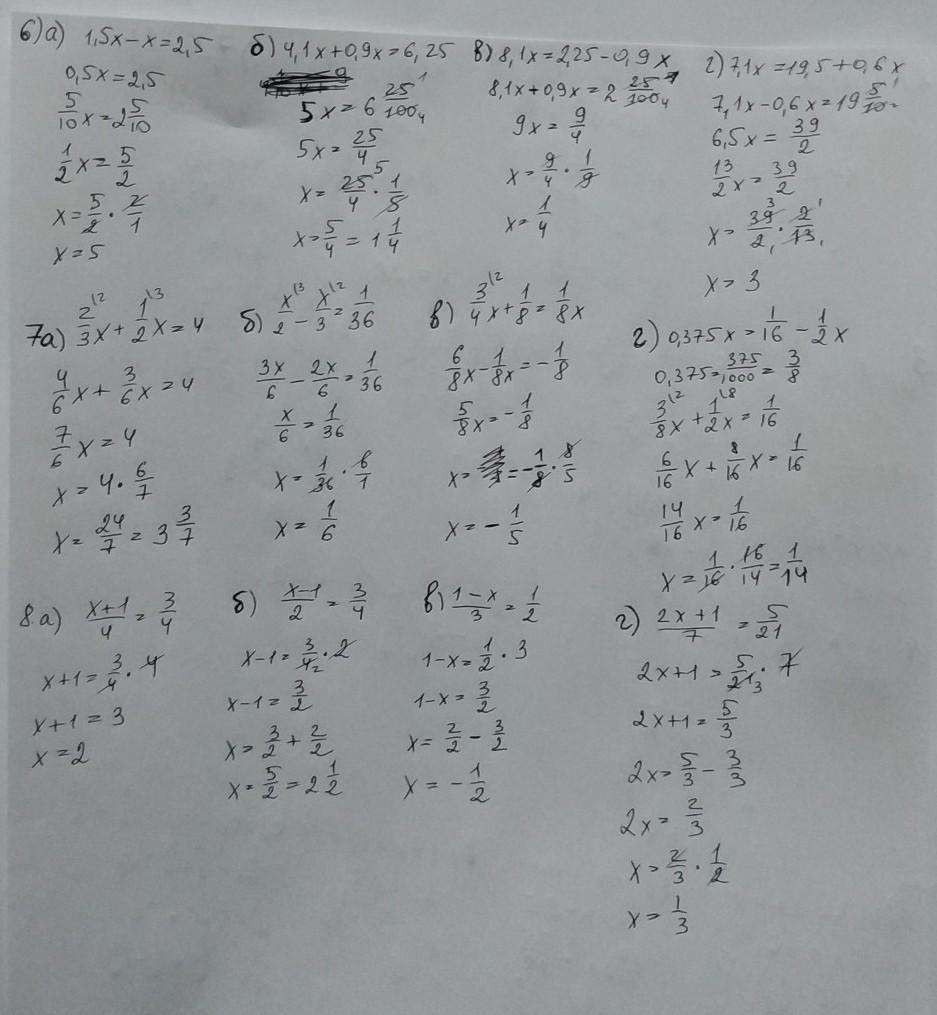 6)а) 1,5x-x=2,5
0,5x=2,5
5/10 x=2 5/10
1/2 x=5/2
x=5/2·2/1
x=5
б) 4,1x+0,9x=6,25
5x=6 25/100
5x=25/4
x=25/4·1/5
x=5/4=1 1/4
в) 8,1x=2,25-0,9x
8,1x+0,9x=2 25/100
9x=9/4
x=9/4·1/9
x=1/4
г) 7,1x=19,5+0,6x
7,1x-0,6x=19 5/10
6,5x=39/2
13/2 x=39/2
x=39/2·2/13
x=3
7а) 2/3 x+1/2 x=4
4/6 x+3/6 x=4
7/6 x=4
x=4·6/7
x=24/7=3 3/7
б) x/2-x/3=1/36
3x/6-2x/6=1/36
x/6=1/36
x=1/36·6/1
x=1/6
в) 3/4 x+1/8=1/8 x
6/8 x-1/8 x=-1/8
5/8 x=-1/8
x=-1/8·8/5
x=-1/5
г) 0,375x=1/16-1/2 x
0,375=375/1000=3/8
3/8 x+1/2 x=1/16
6/16 x+8/16 x=1/16
14/16 x=1/16
x=1/16·16/14=1/14
8.а) x+1/4=3/4
x+1=3/4·4
x+1=3
x=2
б) x-1/2=3/4
x-1=3/4·2
x-1=3/2
x=3/2+2/2
x=5/2=2 1/2
в) 1-x/3=1/2
1-x=1/2·3
1-x=3/2
x=2/2-3/2
x=-1/2
г) 2x+1/7=5/21
2x+1=5/21·7
2x+1=5/3
2x=5/3-3/3
2x=2/3
x=2/3·1/2
x=1/3